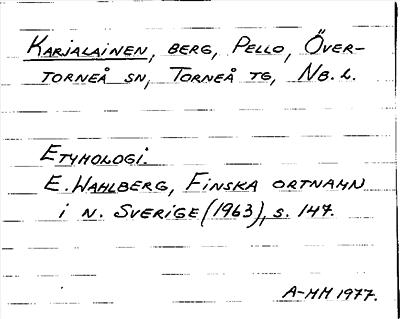 KARJALAINEN, BERG, PELLO, ÖVER-
TORNEÅ SN, TORNEÅ TG, NB. L.
ETYMOLOGI.
E. WAHLBERG, FINSKA ORTNAMN
I N. SVERIGE (1963), S. 147.
A-MM 1977.